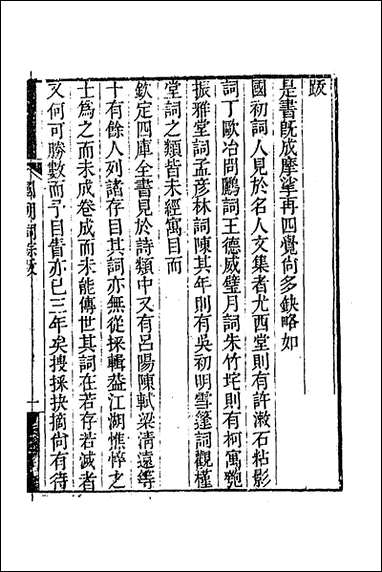 跋
是書既成摩挲再四覺尙多缺略如
國初詞人見於名人文集者尤西堂則有許漱石粘影
詞丁歐冶問鷗詞王德威璧月詞朱竹垞則有柯寓匏
振雅堂詞孟彥林詞陳其年則有吳初明雪篷詞觀槿
堂詞之類皆未經寓目而
欽定四庫全書見於詩類中又有呂陽陳軾梁清遠等
十有餘人列諸存目其詞亦無從採輯蓋江湖憔悴之
士爲之而未成卷成而未能傳世其詞在若存若滅者
又何可勝數而予目眚亦已三年矣搜採抉摘尙有待
國朝詞綜跋
一